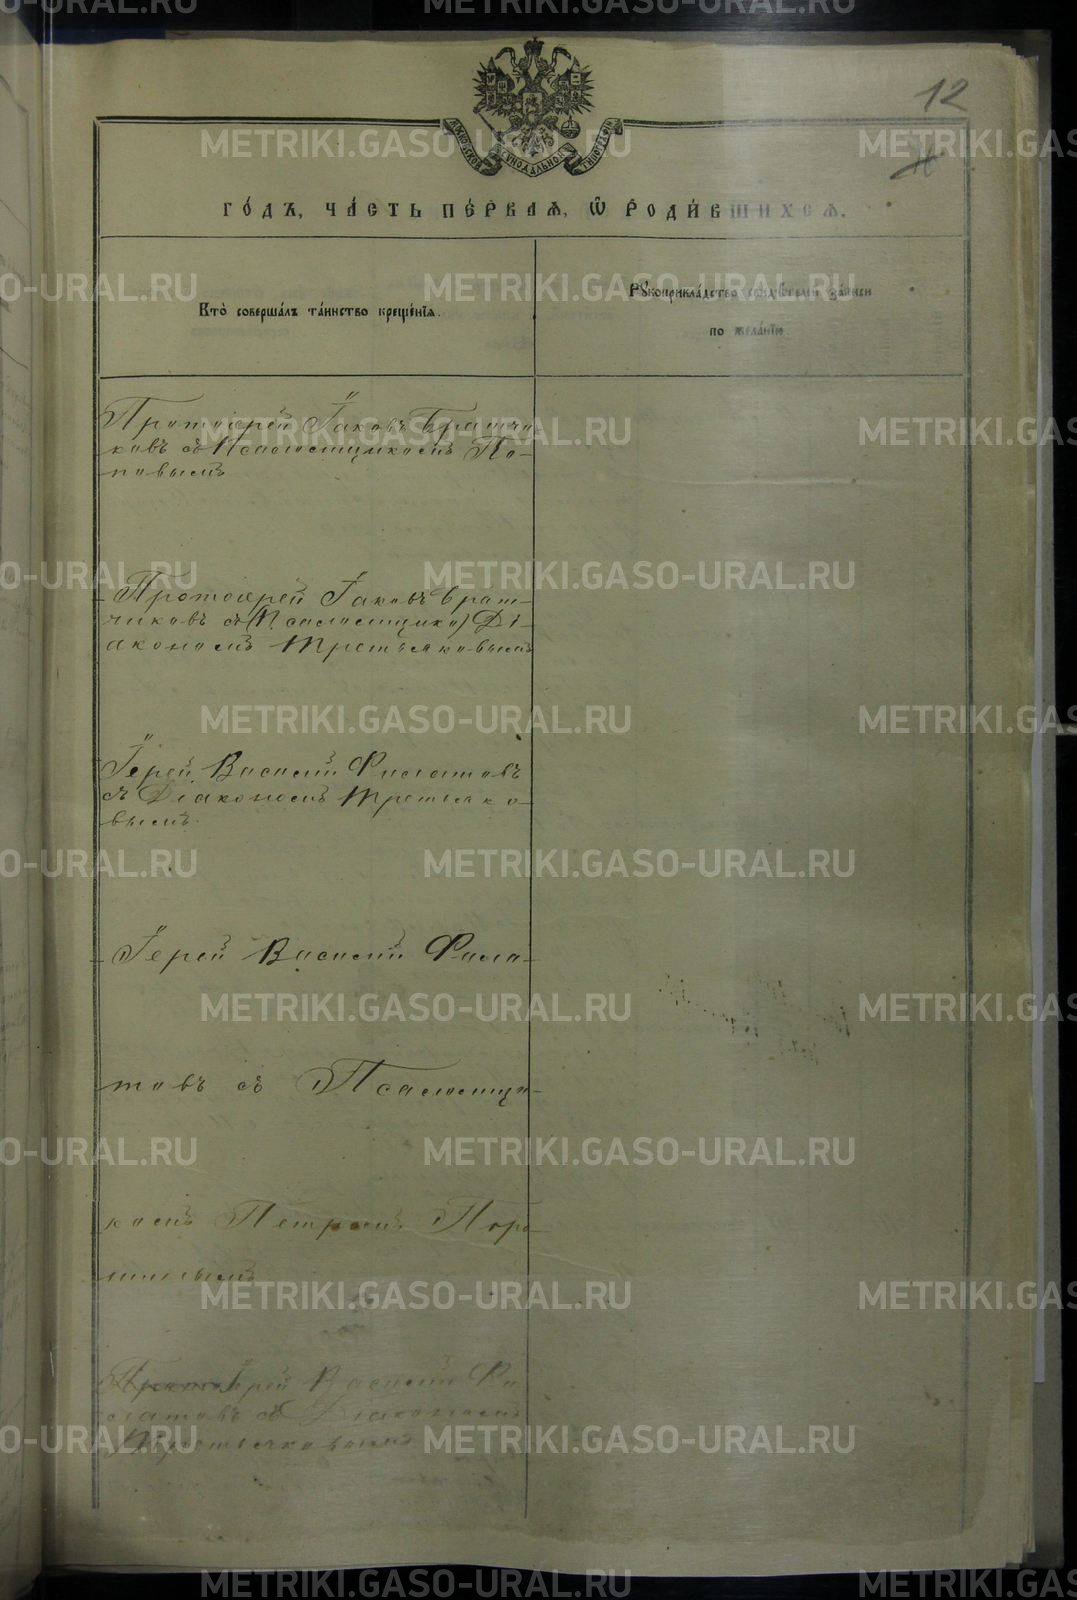 12
МОСКОВСКОЙ СѴНОДАЛЬНОЙ ТИПОГРАФІИ
ГО́ДЪ, ЧА́СТЬ ПЕ́РВАѦ, Ѽ РОДИ́ВШИХСѦ.
Кто̀ соверша́лъ та́инство креще́нїѧ.
Рꙋкоприкла́дство свидѣтелей за́писи
по жела́нїю.
Протоіерей Іаковъ Братчи-
ковъ съ Псаломщикомъ По-
повымъ
Протоіерей Іаковъ Брат-
чиковъ съ (Псаломщико) Ді-
акономъ Третьяковымъ
Іерей Василій Филатовъ
съ Діакономъ Третьяко-
вымъ.
Іерей Василій Фила-
товъ съ Псаломщи-
комъ Петромъ Поро-
шинымъ
Протоіерей Василій Фи
латовъ съ Діакономъ
Третьяковымъ
METRIKI.GASO-URAL.RU